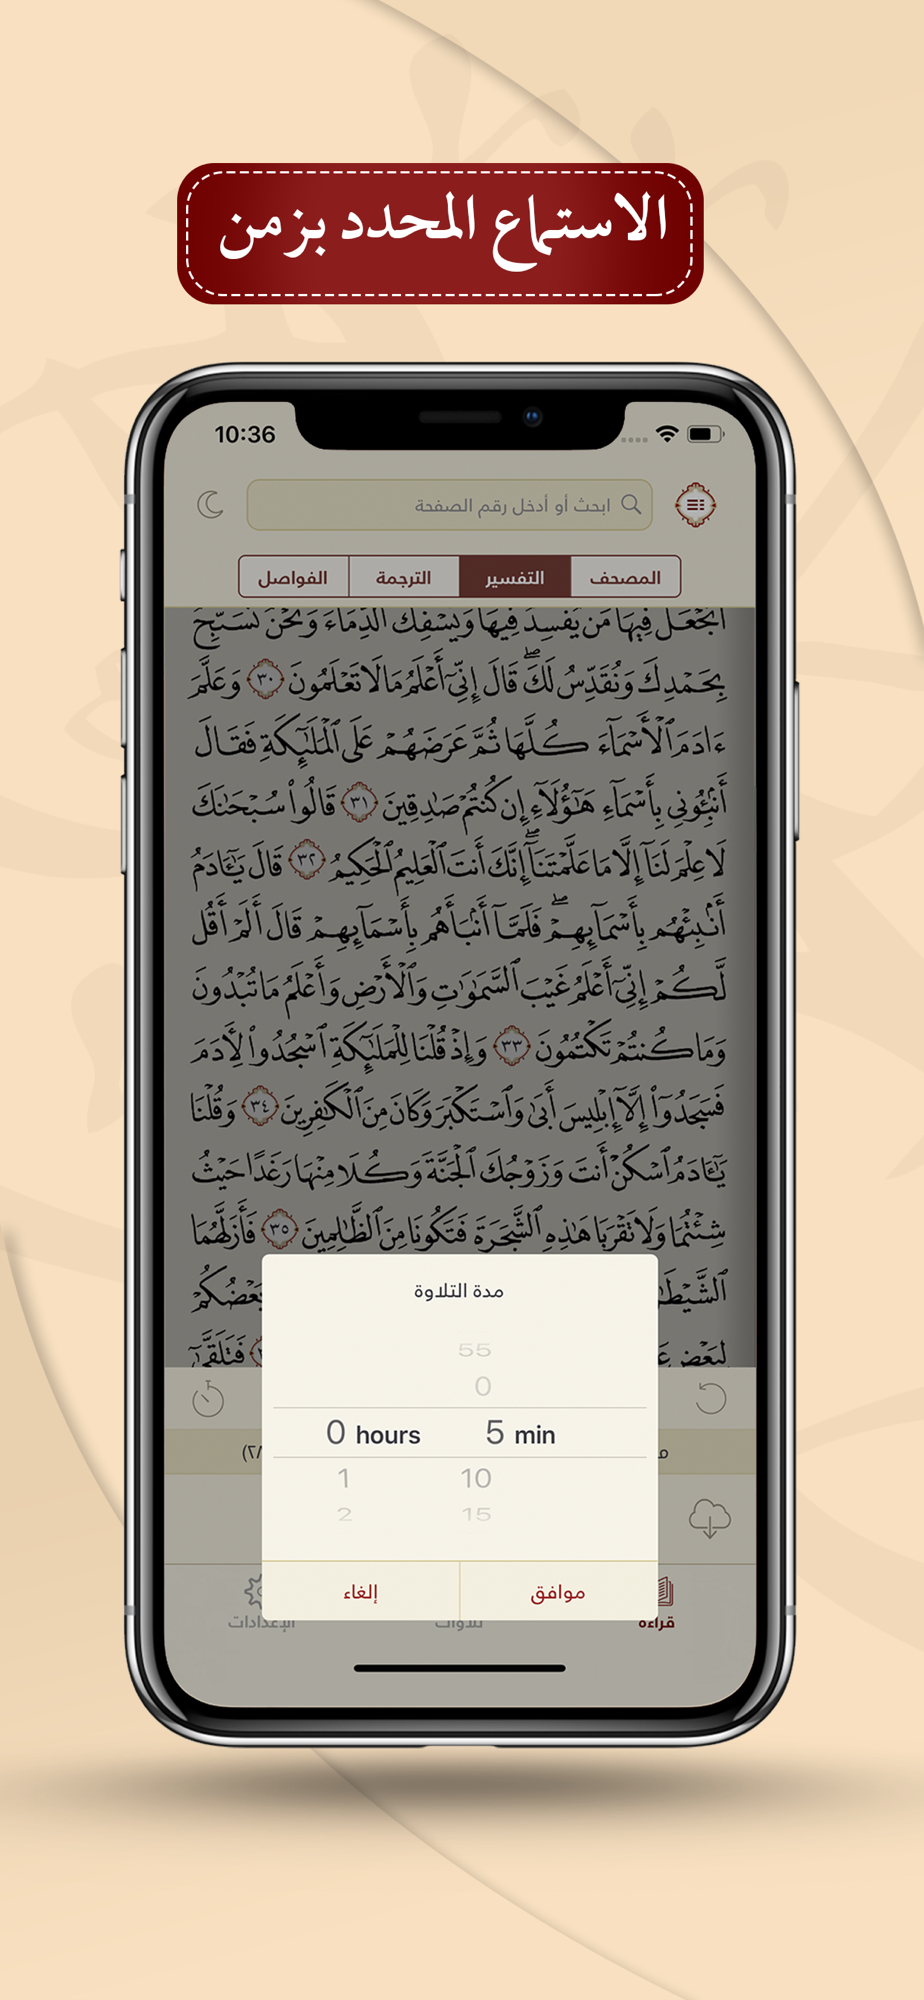 الاستماع المحدد بزمن
10:36
ابحث أو أدخل رقم الصفحة
المصحف التفسير الترجمة الفواصل
أَتَجْعَلُ فِيهَا مَن يُفْسِدُ فِيهَا وَيَسْفِكُ الدِّمَاءَ وَنَحْنُ نُسَبِّحُ
بِحَمْدِكَ وَنُقَدِّسُ لَكَ ۖ قَالَ إِنِّي أَعْلَمُ مَا لَا تَعْلَمُونَ ٣٠ وَعَلَّمَ
ءَادَمَ ٱلْأَسْمَآءَ كُلَّهَا ثُمَّ عَرَضَهُمْ عَلَى ٱلْمَلَٰٓئِكَةِ فَقَالَ
أَنۢبِـُٔونِي بِأَسْمَآءِ هَٰٓؤُلَآءِ إِن كُنتُمْ صَٰدِقِينَ ٣١ قَالُوا۟ سُبْحَٰنَكَ
لَا عِلْمَ لَنَآ إِلَّا مَا عَلَّمْتَنَآ ۖ إِنَّكَ أَنتَ ٱلْعَلِيمُ ٱلْحَكِيمُ ٣٢ قَالَ يَٰٓـَٔادَمُ
أَنۢبِئْهُم بِأَسْمَآئِهِمْ ۖ فَلَمَّآ أَنۢبَأَهُم بِأَسْمَآئِهِمْ قَالَ أَلَمْ أَقُل
لَّكُمْ إِنِّيٓ أَعْلَمُ غَيْبَ ٱلسَّمَٰوَٰتِ وَٱلْأَرْضِ وَأَعْلَمُ مَا تُبْدُونَ
وَمَا كُنتُمْ تَكْتُمُونَ ٣٣ وَإِذْ قُلْنَا لِلْمَلَٰٓئِكَةِ ٱسْجُدُوا۟ لِءَادَمَ
فَسَجَدُوٓا۟ إِلَّآ إِبْلِيسَ أَبَىٰ وَٱسْتَكْبَرَ وَكَانَ مِنَ ٱلْكَٰفِرِينَ ٣٤ وَقُلْنَا
يَٰٓـَٔادَمُ ٱسْكُنْ أَنتَ وَزَوْجُكَ ٱلْجَنَّةَ وَكُلَا مِنْهَا رَغَدًا حَيْثُ
شِئْتُمَا وَلَا تَقْرَبَا هَٰذِهِ ٱلشَّجَرَةَ فَتَكُونَا مِنَ ٱلظَّٰلِمِينَ ٣٥ فَأَزَلَّهُمَا
بَعْضُكُمْ
لِبَعْضٍ فَتَلَقَّىٰٓ
مدة التلاوة
55
0
0 hours 5 min
1 10
2 15
موافق إلغاء
قراءة تلاوات الإعدادات